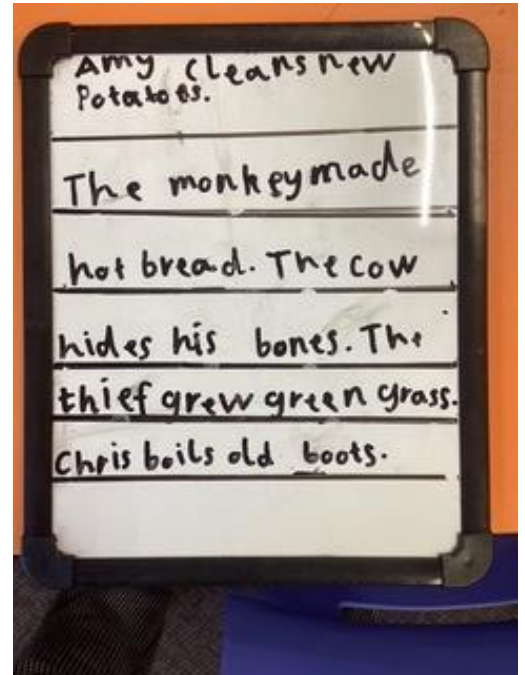 Amy cleans new
Potatoes.
The monkey made
hot bread. The cow
hides his bones. The
thief grew green grass.
Chris boils old boots.